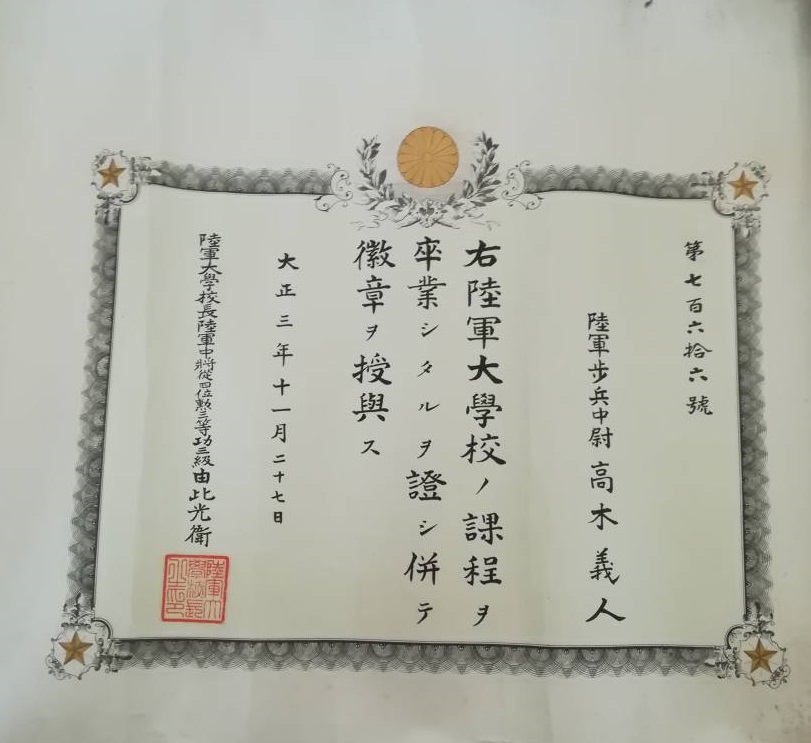 第七百六拾六號
陸軍步兵中尉 高木義人
右陸軍大學校ノ課程ヲ
卒業シタルヲ證シ併テ
徽章ヲ授與ス
大正三年十一月二十七日
陸軍大學校長陸軍中將從四位勲三等功三級由比光衛